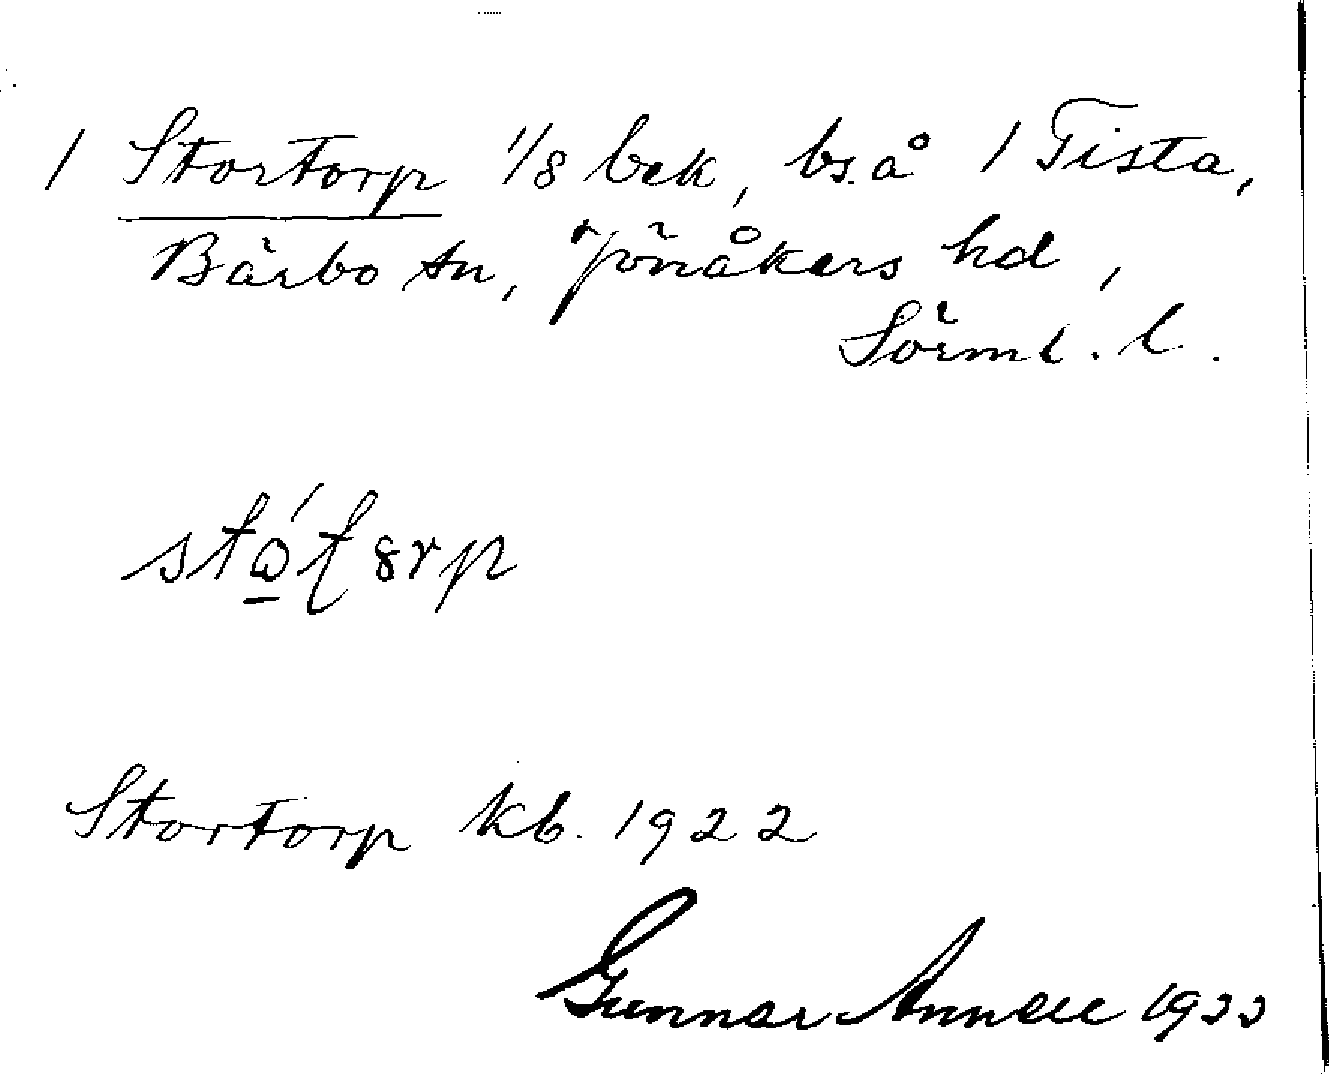 1 Stortorp 1/8 bek, bs. å 1 Tista,
Bärbo sn, Jönåkers hd,
Sörml. l.
Stortorp kb. 1922
Gunnar Annell 1922